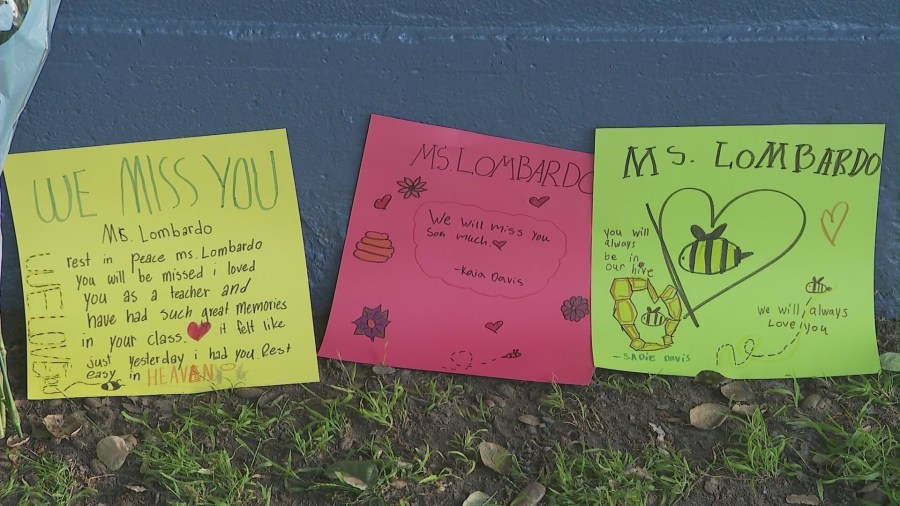 WE MISS YOU
Ms. Lombardo
rest in peace ms. Lombardo
you will be missed i loved
you as a teacher and
have had such great memories
in your class. it felt like
just yesterday i had you Rest
easy in HEAVEN
WE LOVE YOU
MS. LOMBARDO
We will miss you
Soo much.
-Kaia Davis
MS. LOMBARDO
you will
always
be in
our hive
we will always
Love you
-SADIE DAVIS